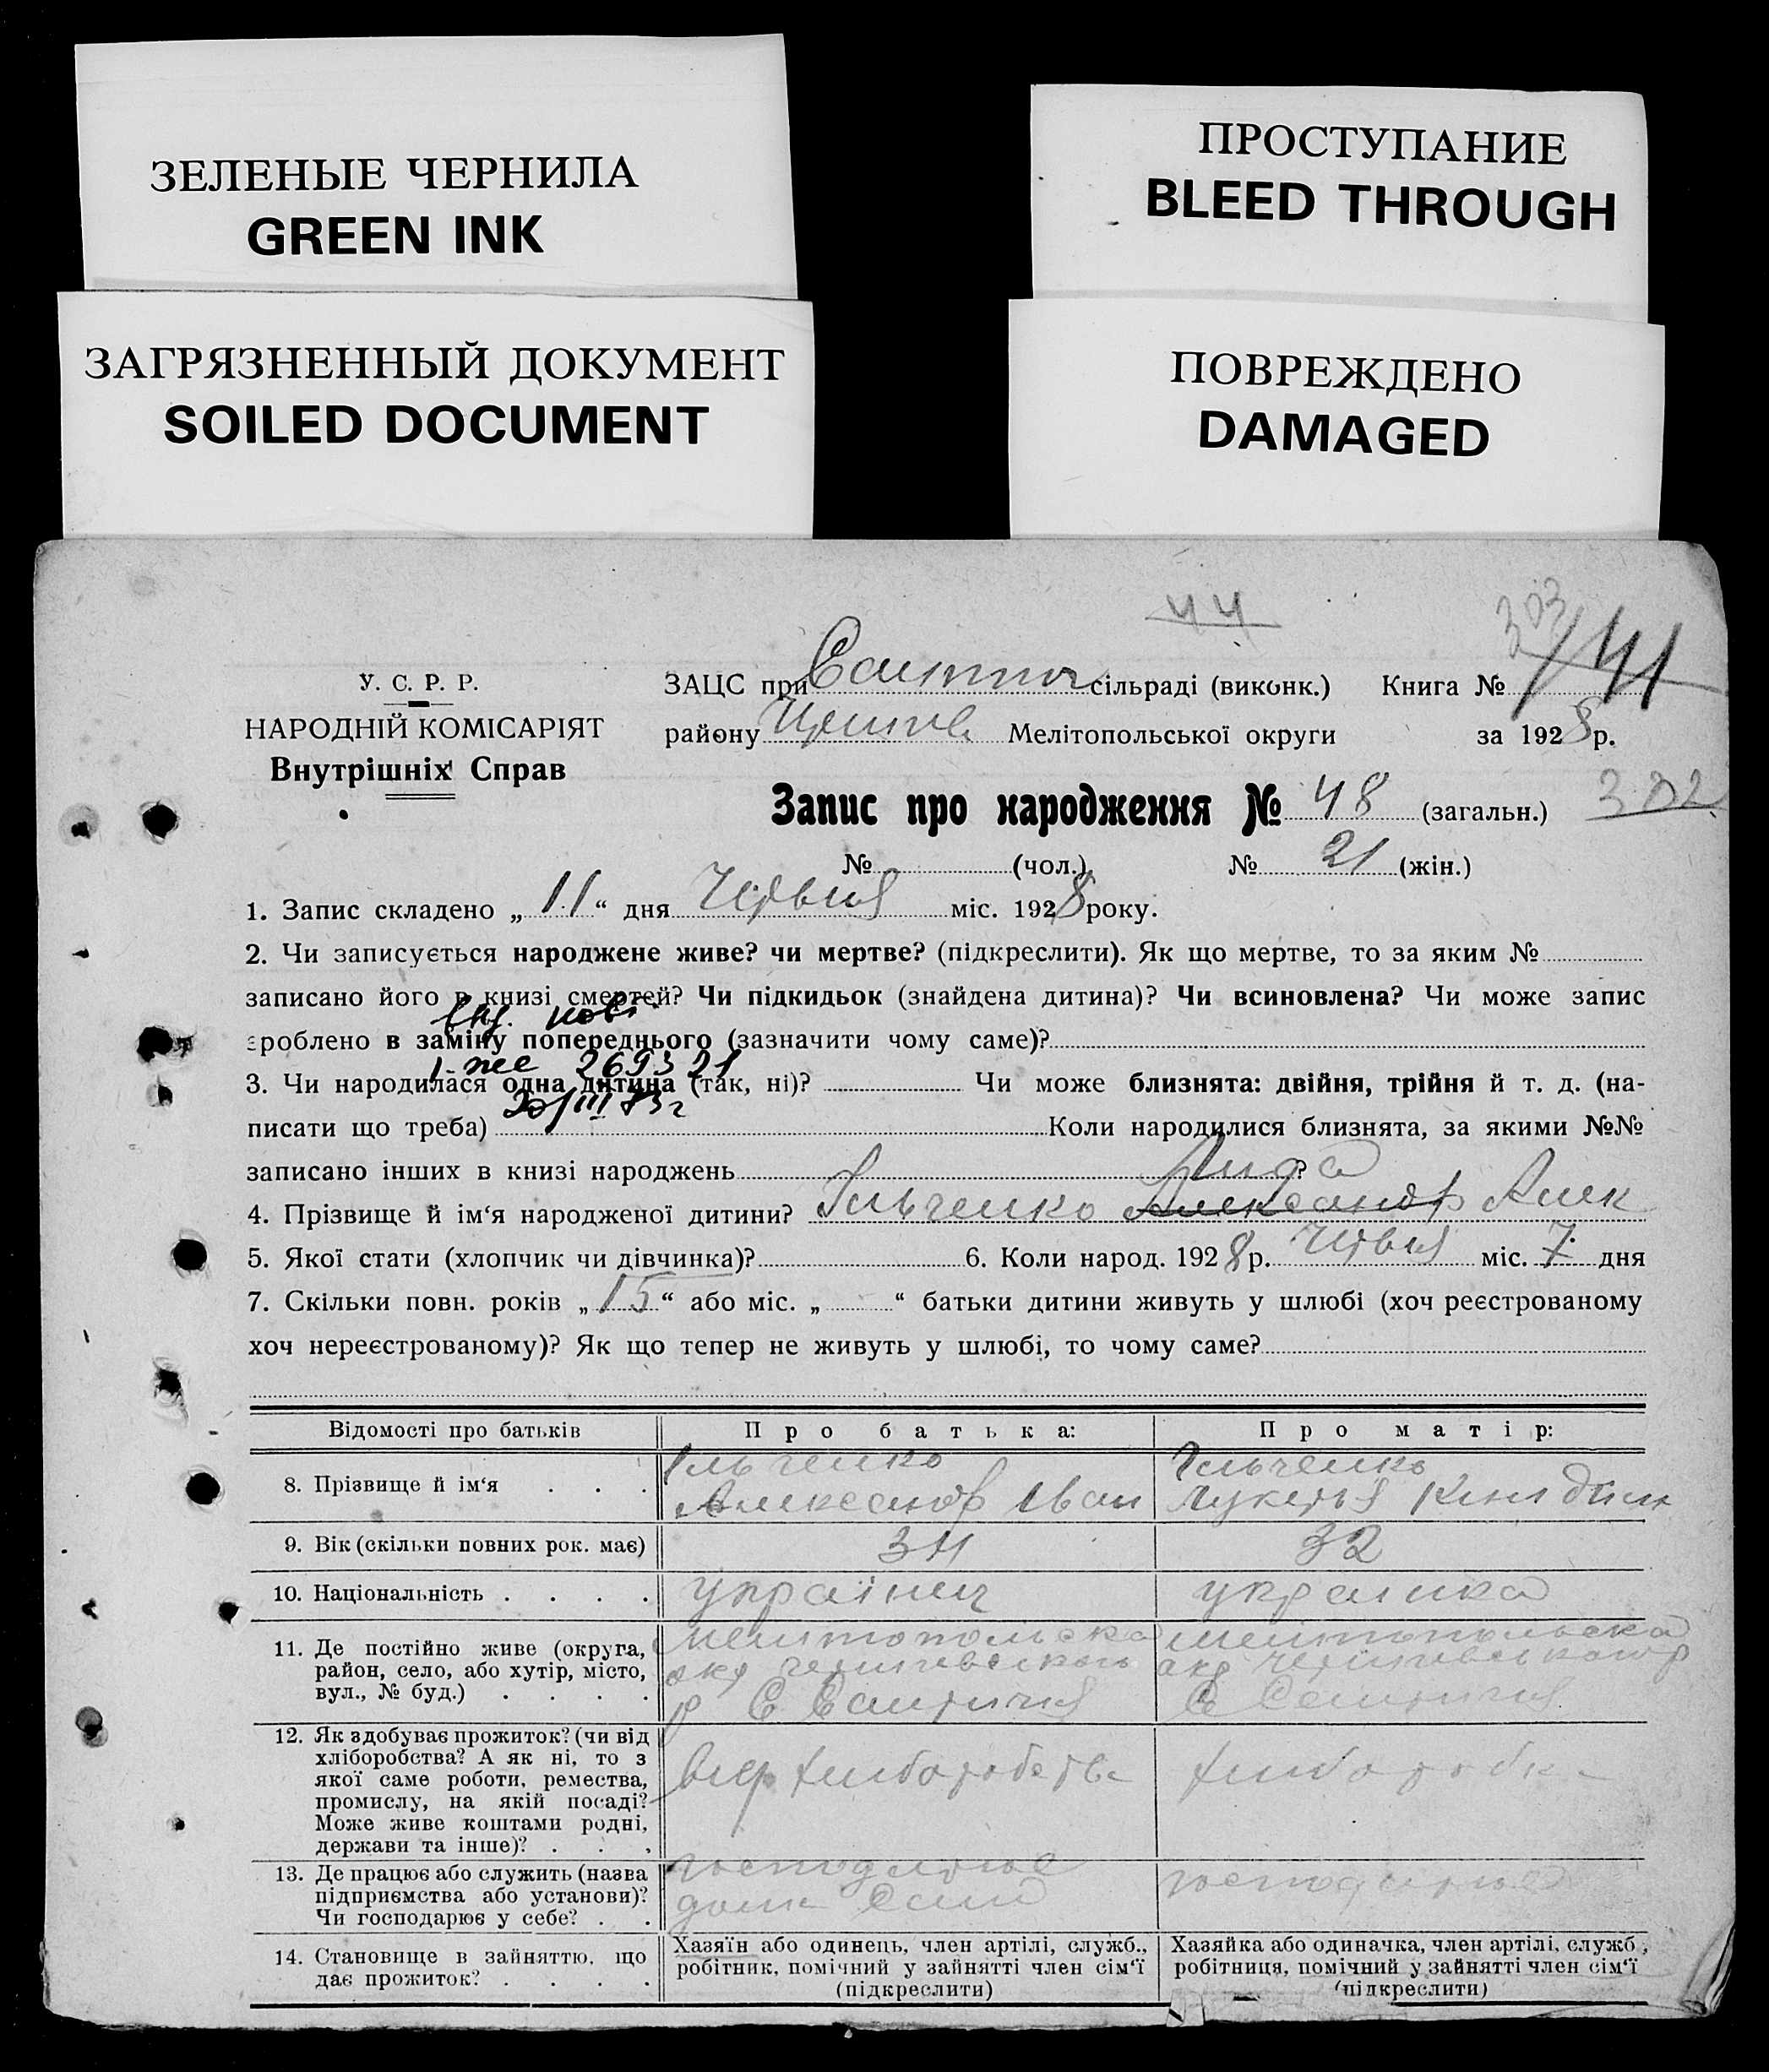 ЗЕЛЕНЫЕ ЧЕРНИЛА
GREEN INK
ПРОСТУПАНИЕ
BLEED THROUGH
ЗАГРЯЗНЕННЫЙ ДОКУМЕНТ
SOILED DOCUMENT
ПОВРЕЖДЕНО
DAMAGED
44
303
У. С. Р. Р.
НАРОДНІЙ КОМІСАРІЯТ
Внутрішніх Справ
ЗАЦС при сільраді (виконк.) Книга №
району Мелітопольської округи за 1928 р.
Запис про народження № 48 (загальн.) 302
№ (чол.) № 21 (жін.)
1. Запис складено „ 11 “ дня Червня міс. 1928 року.
2. Чи записується народжене живе? чи мертве? (підкреслити). Як що мертве, то за яким №
записано його в книзі смертей? Чи підкидьок (знайдена дитина)? Чи всиновлена? Чи може запис
зроблено в заміну попереднього (зазначити чому саме)?
269321
3. Чи народилася одна дитина (так, ні)? Чи може близнята: двійня, трійня й т. д. (на-
писати що треба) Коли народилися близнята, за якими №№
записано інших в книзі народжень ?
Лида
4. Прізвище й ім‘я народженої дитини? Ільченко Александр Алек
5. Якої стати (хлопчик чи дівчинка)? 6. Коли народ. 1928 р. Червня міс. 7 дня
7. Скільки повн. років „ 15 “ або міс. „ “ батьки дитини живуть у шлюбі (хоч реєстрованому
хоч нереєстрованому)? Як що тепер не живуть у шлюбі, то чому саме?
Відомості про батьків
Про батька:
Про матір:
8. Прізвище й ім‘я . . .
Ільченко
Александр Іван
Ільченко
Лукерья
9. Вік (скільки повних рок. має)
34
32
10. Національність . . . .
українец
украинка
11. Де постійно живе (округа,
район, село, або хутір, місто,
вул., № буд.) . . . .
Мелитопольска
окр
р С
Мелитопольска
окр
С
12. Як здобуває прожиток? (чи від
хліборобства? А як ні, то з
якої саме роботи, ремества,
промислу, на якій посаді?
Може живе коштами родні,
держави та інше)? . . .
13. Де працює або служить (назва
підприємства або установи)?
Чи господарює у себе? . .
14. Становище в зайняттю, що
дає прожиток? . . . .
Хазяїн або одинець, член артілі, служб.,
робітник, помічний у зайнятті член сім‘ї
(підкреслити)
Хазяйка або одиначка, член артілі, служб.,
робітниця, помічний у зайнятті член сім‘ї
(підкреслити)